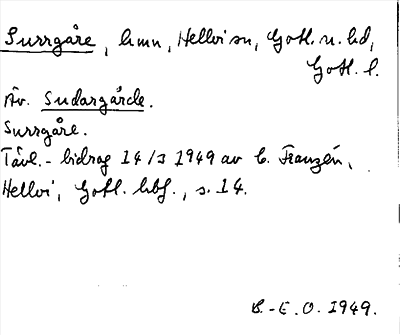 Surrgåre, hmn, Hellvi sn, Gotl. n. hd,
Gotl. l.
Av. Sudargårde.
Surrgåre.
Tävl.-bidrag 14/3 1949 av C. Franzén,
Hellvi, Gotl. hbf., s. 14.
B.-E. O. 1949.